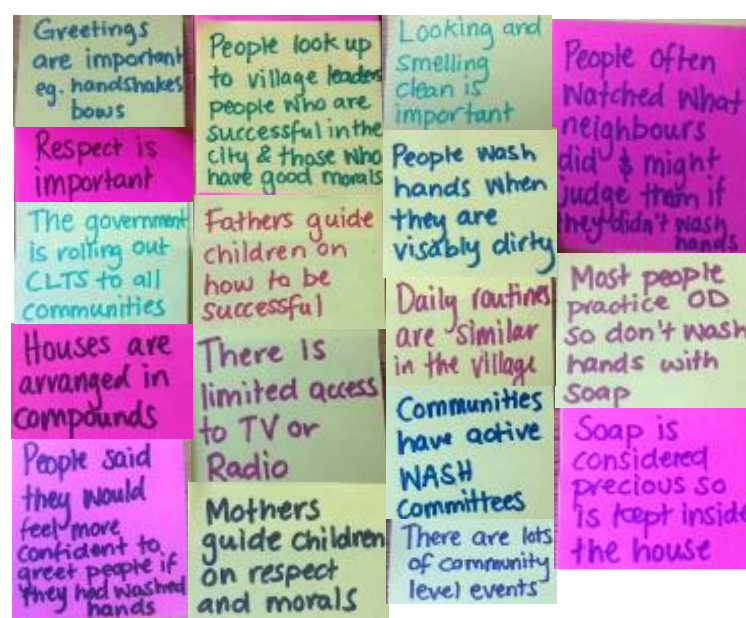 Greetings
are important
eg. handshakes
bows
Respect is
important
The government
is rolling out
CLTS to all
communities
Houses are
arranged in
compounds
People said
they would
feel more
confident to
greet people if
they had washed
hands
People look up
to village leaders
people who are
successful in the
city & those who
have good morals
Fathers guide
children on
how to be
successful
There is
limited access
to TV or
Radio
Mothers
guide children
on respect
and morals
Looking and
smelling
clean is
important
People wash
hands when
they are
visably dirty
Daily routines
are similar
in the village
Communities
have active
WASH
Committees
There are lots
of community
level events
People often
watched what
neighbours
did & might
judge them if
they didn't wash
hands
Most people
practice OD
so don't wash
hands with
soap
Soap is
considered
precious so
is kept inside
the house